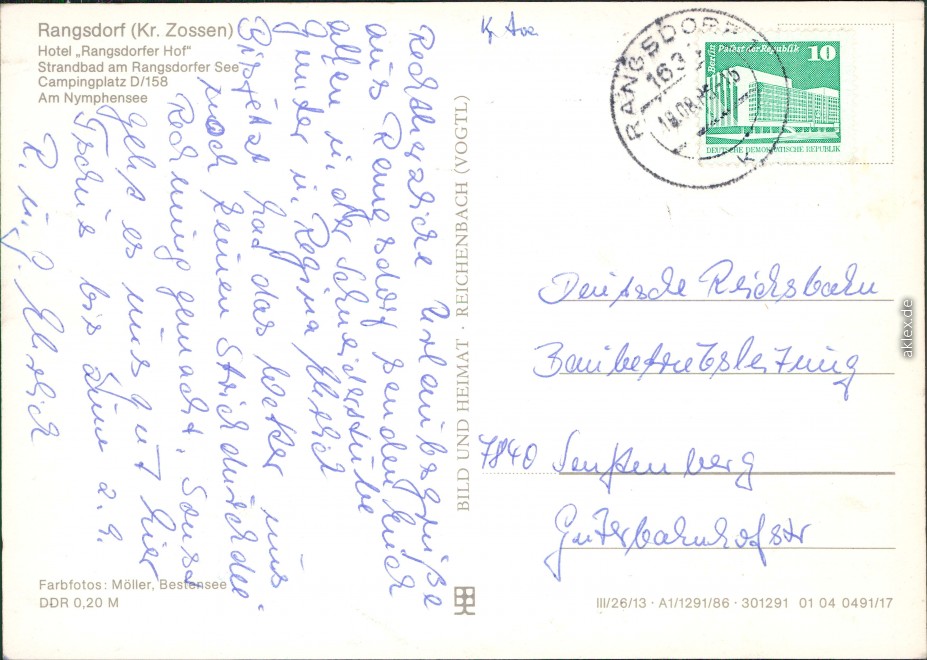 Rangsdorf (Kr. Zossen)
Hotel „Rangsdorfer Hof"
Strandbad am Rangsdorfer See
Campingplatz D/158
Am Nymphensee
Recht herzliche Urlaubsgrüße
aus Rangsdorf senden Euch
allen in der Schneiderstube
Günter u. Regina Ehrlich
Bis jetzt hat das Wetter uns
noch keinen Strich durch die
Rechnung gemacht. Sonst
geht es uns gut hier
Tschüs bis
R. u. G. Ehrlich
Farbfotos: Möller, Bestensee
DDR 0,20 M
BILD UND HEIMAT · REICHENBACH (VOGTL)
RANGSDORF
163
Berlin Palast der Republik 10
DEUTSCHE DEMOKRATISCHE REPUBLIK
Deutsche Reichsbahn
Baubetriebsleitung
7840 Senftenberg
Güterbahnhofstr
III/26/13 · A1/1291/86 · 301291 01 04 0491/17
aklex.de